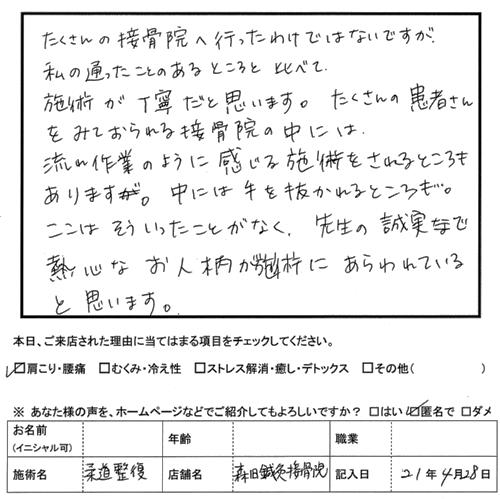 たくさんの接骨院へ行ったわけではないですが、
私の通ったことのあるところと比べて、
施術が丁寧だと思います。たくさんの患者さん
をみておられる接骨院の中には、
流れ作業のように感じる施術をされるところも
あります。中には手を抜かれるところも。
ここはそういったことがなく、先生の誠実で
熱心なお人柄が施術にあらわれている
と思います。
本日、ご来店された理由に当てはまる項目をチェックしてください。
☑肩こり・腰痛 □むくみ・冷え性 □ストレス解消・癒し・デトックス □その他( )
※ あなた様の声を、ホームページなどでご紹介してもよろしいですか？ □はい ☑匿名で □ダメ
お名前 (イニシャル可) 年齢 職業
施術名 柔道整復 店舗名 森田鍼灸接骨院 記入日 21年4月28日